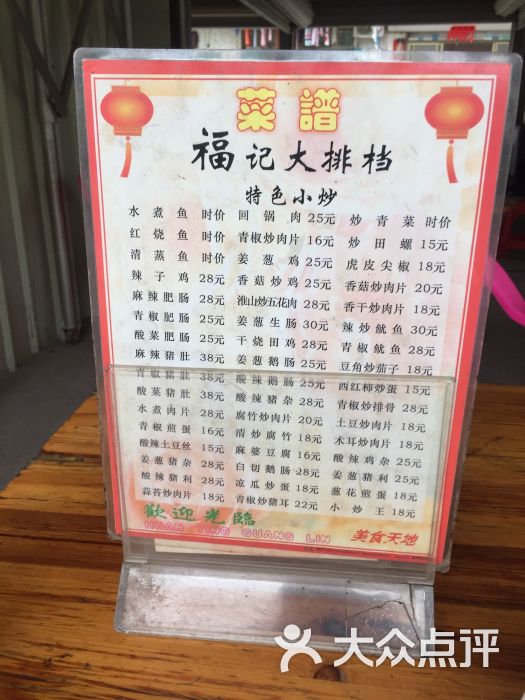 菜譜
福记大排档
特色小炒
水煮鱼 时价 回锅肉 25元 炒青菜 时价
红烧鱼 时价 青椒炒肉片 16元 炒田螺 15元
清蒸鱼 时价 姜葱鸡 25元 虎皮尖椒 18元
辣子鸡 28元 香菇炒鸡 25元 香菇炒肉片 20元
麻辣肥肠 28元 淮山炒五花肉 28元 香干炒肉片 18元
青椒肥肠 25元 姜葱生肠 30元 辣炒鱿鱼 30元
酸菜肥肠 25元 干烧田鸡 28元 青椒鱿鱼 28元
麻辣猪肚 38元 姜葱鹅肠 25元 豆角炒茄子 18元
青椒猪肚 38元 酸辣鹅肠 25元 西红柿炒蛋 15元
酸菜猪肚 38元 酸辣猪杂 28元 青椒炒排骨 28元
水煮肉片 28元 腐竹炒肉片 20元 土豆炒肉片 18元
青椒煎蛋 16元 清炒腐竹 18元 木耳炒肉片 18元
酸辣土豆丝 15元 麻婆豆腐 16元 酸辣鸡杂 25元
姜葱猪杂 28元 白切鹅肠 28元 姜葱猪利 25元
酸辣猪利 28元 凉瓜炒蛋 18元 葱花煎蛋 18元
蒜苔炒肉片 18元 青椒炒猪耳 22元 小炒王 18元
歡迎光臨
HUAN YING GUANG LIN
美食天地
大众点评